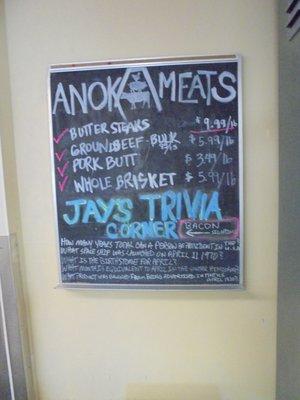 ANOKA MEATS
BUTTER STEAKS $9.99/lb
GROUND BEEF-BULK $5.99/lb
PORK BUTT $3.49/lb
WHOLE BRISKET $5.99/lb
JAY'S TRIVIA
CORNER
BACON
HOW MANY YEARS TOTAL CAN A PERSON BE PRESIDENT IN THE U.S.A?
WHAT SPACE SHIP WAS LAUNCHED ON APRIL 11 1970?
WHAT IS THE BIRTHSTONE FOR APRIL?
WHAT MONTH IS EQUIVALENT TO APRIL IN THE
WHAT PRODUCT WAS BANNED FROM BEING ADVERTISED IN THE U.S.